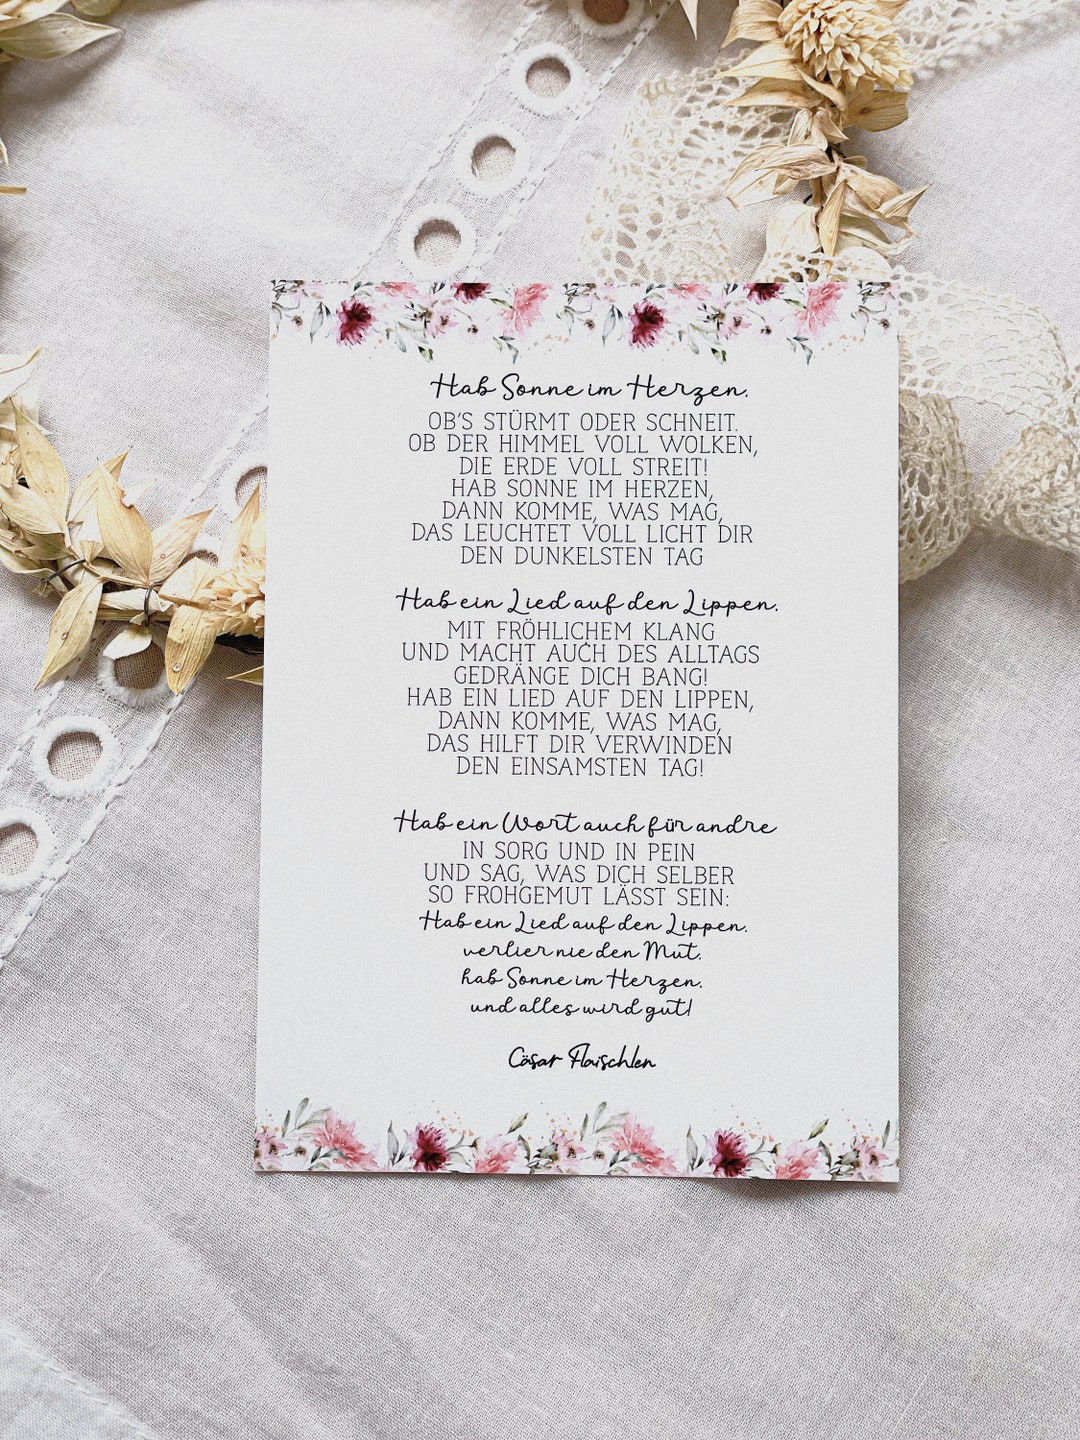 Hab Sonne im Herzen.
OB'S STÜRMT ODER SCHNEIT.
OB DER HIMMEL VOLL WOLKEN,
DIE ERDE VOLL STREIT!
HAB SONNE IM HERZEN,
DANN KOMME, WAS MAG,
DAS LEUCHTET VOLL LICHT DIR
DEN DUNKELSTEN TAG
Hab ein Lied auf den Lippen.
MIT FRÖHLICHEM KLANG
UND MACHT AUCH DES ALLTAGS
GEDRÄNGE DICH BANG!
HAB EIN LIED AUF DEN LIPPEN,
DANN KOMME, WAS MAG,
DAS HILFT DIR VERWINDEN
DEN EINSAMSTEN TAG!
Hab ein Wort auch für andre
IN SORG UND IN PEIN
UND SAG, WAS DICH SELBER
SO FROHGEMUT LÄSST SEIN:
Hab ein Lied auf den Lippen.
verlier nie den Mut.
hab Sonne im Herzen.
und alles wird gut!
Cäsar Flaischlen